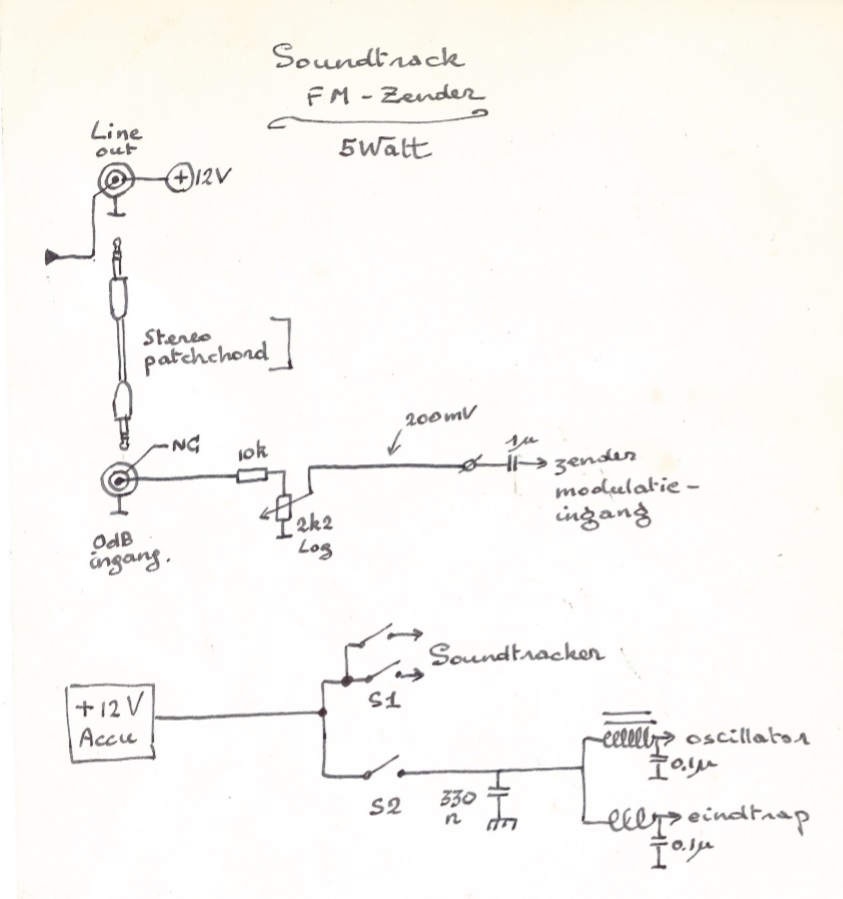 Soundtrack
FM - Zender
5Watt
Line
out
+ 12V
Stereo
patchchord
NC
10k
200mV
1µ
zender
modulatie-
ingang
2k2
Log
0dB
ingang.
Soundtracker
S1
+12V
Accu
S2
330
n
oscillator
0.1µ
eindtrap
0.1µ